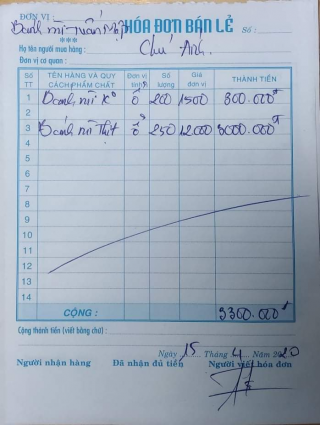 ĐƠN VỊ :
Bánh mì Tuấn Mập HÓA ĐƠN BÁN LẺ Số :
***
Họ tên người mua hàng : Chú Anh.
Đơn vị cơ quan :
Số TT TÊN HÀNG VÀ QUY CÁCH PHẨM CHẤT Đơn vị tính Số lượng Giá đơn vị THÀNH TIỀN
1 Bánh mì Ko ổ 200 1500 300.000đ
2
3 Bánh mì Thịt ổ 250 12000 3000.000đ
4
5
6
7
8
9
10
11
12
13
14
CỘNG : 3300.000đ
Cộng thành tiền (viết bằng chữ) :
Ngày 15 Tháng 4 Năm 2020
Người nhận hàng Đã nhận đủ tiền Người viết hóa đơn